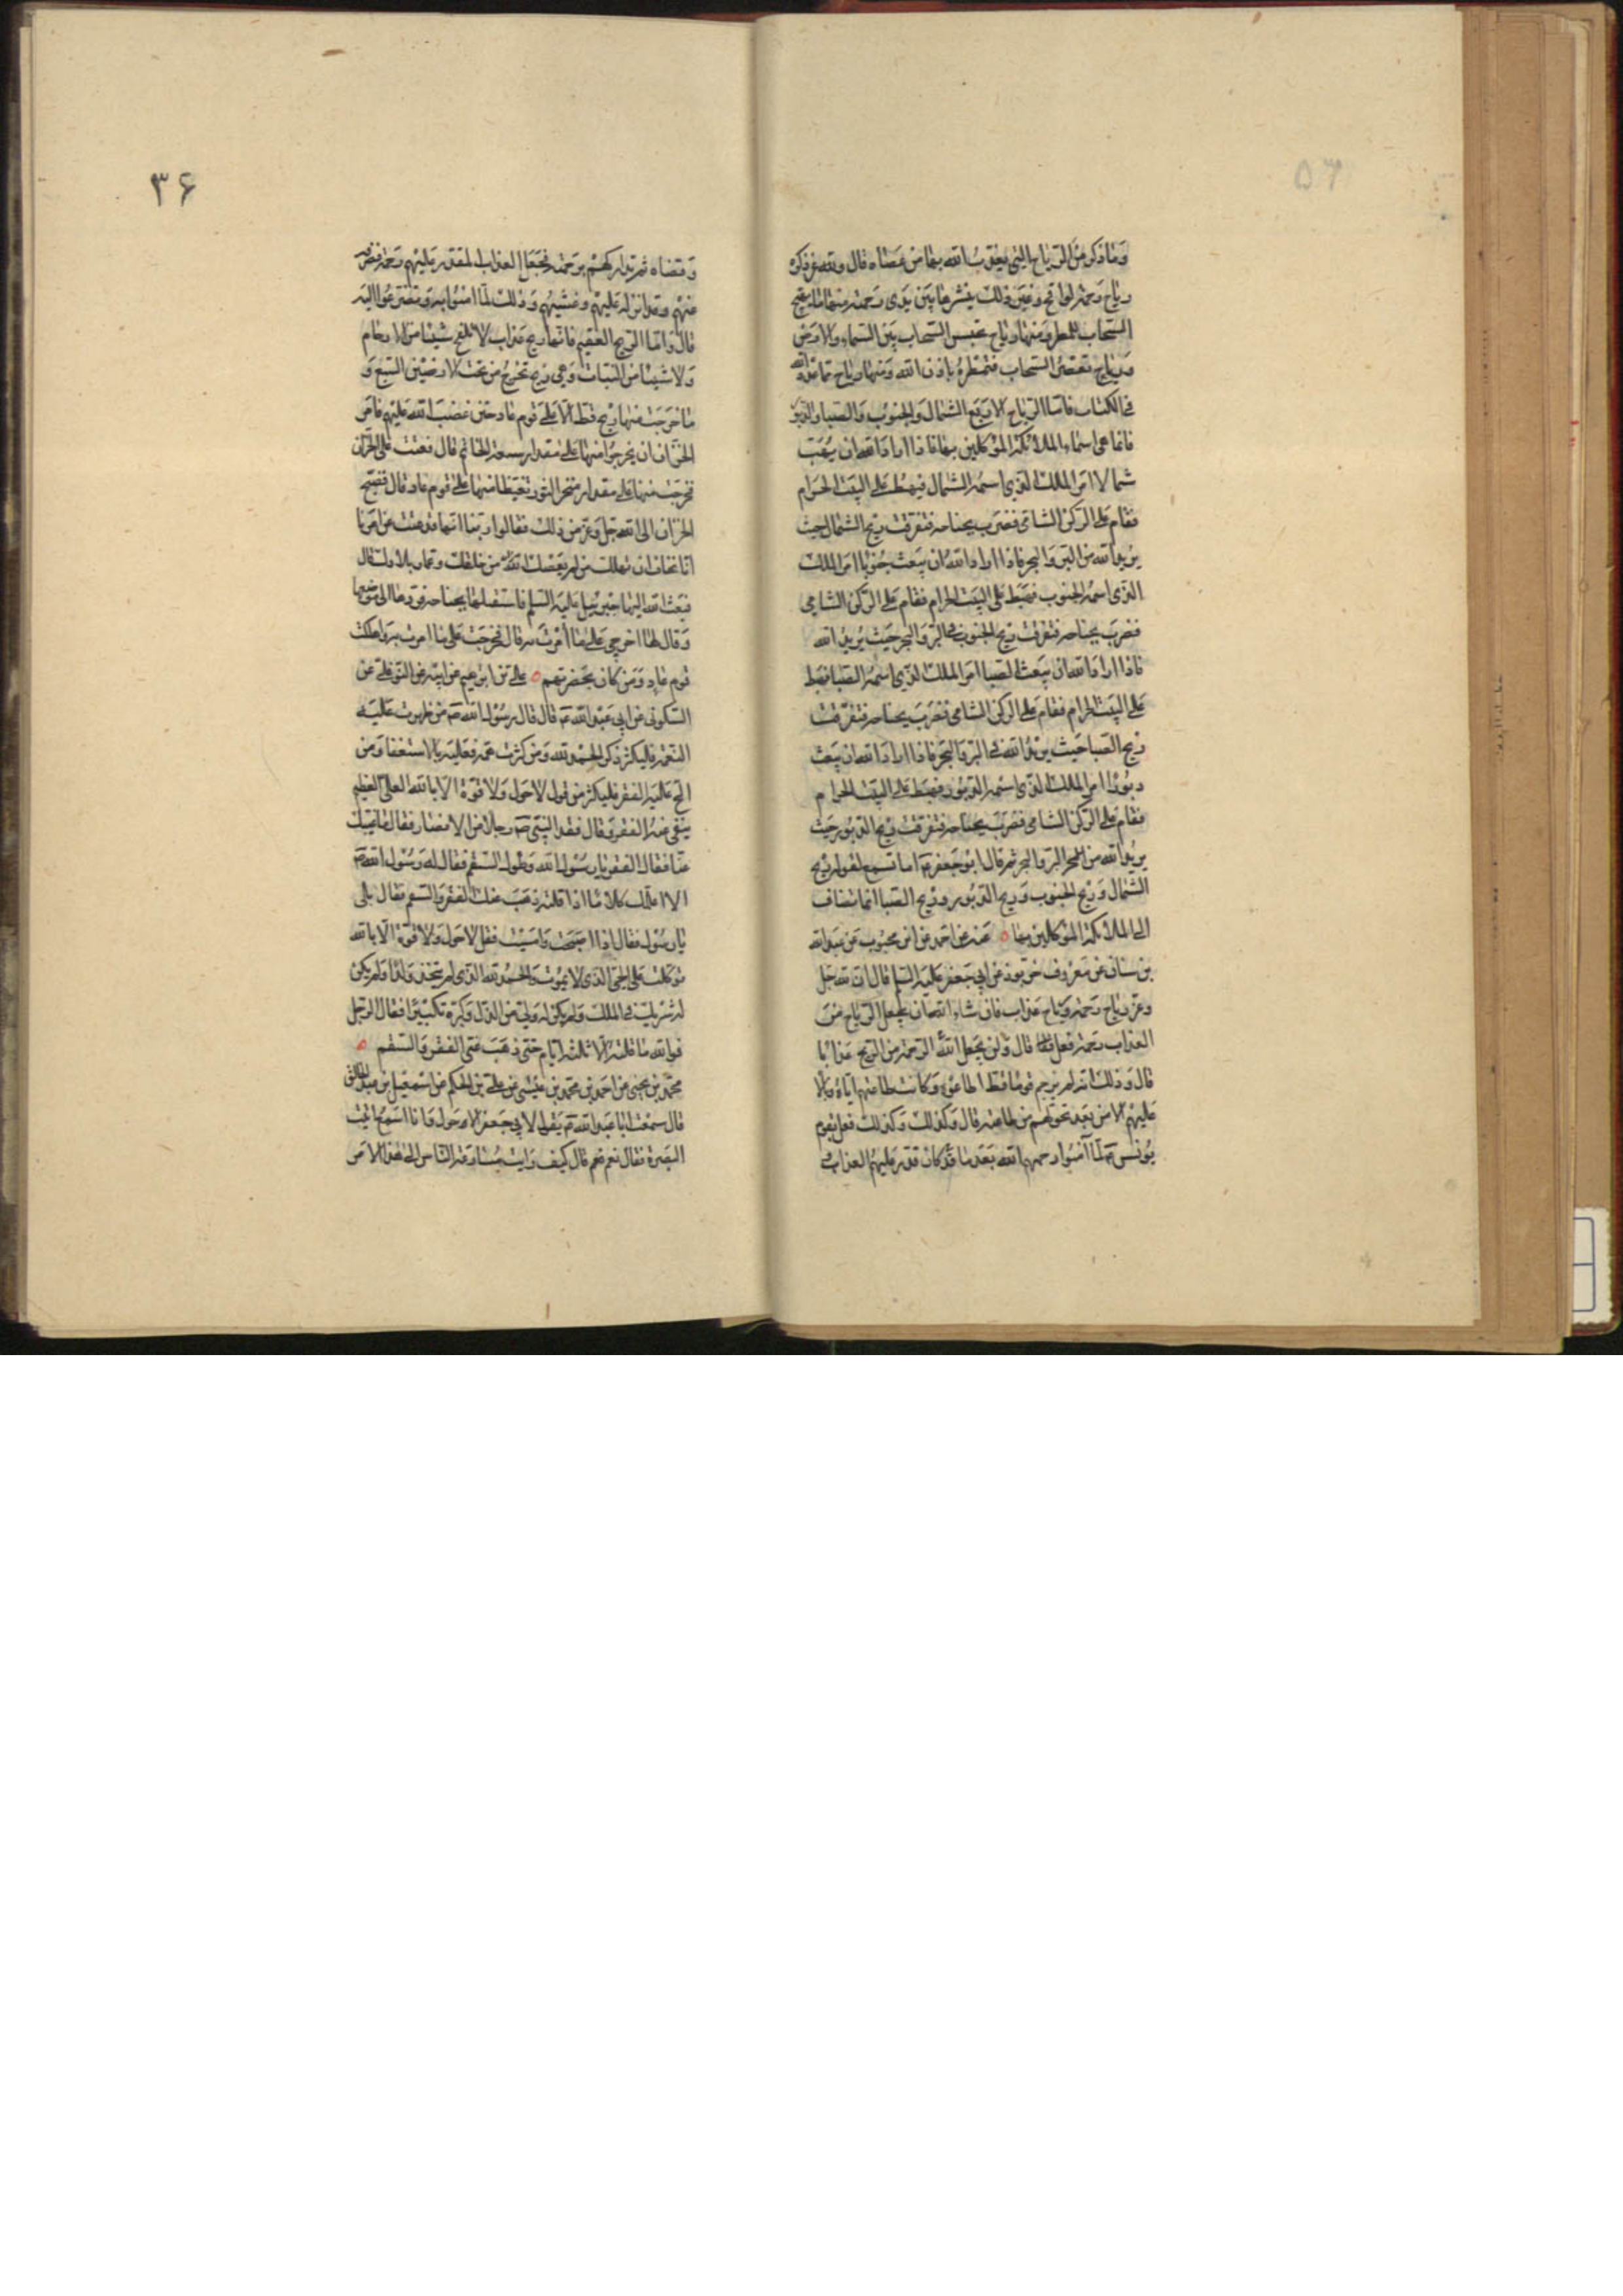 وما ذكر من الرياح التي يعذب الله بها من عصاه قال ولله عز ذكره
رياح رحمة لواقح وغير ذلك ينشرها بين يدى رحمته منها ما يهيج
السحاب للمطر ومنها رياح تحبس السحاب بين السماء والارض
ورياح تعصر السحاب فتمطره باذن الله ومنها رياح مما عدد الله
فى الكتاب فاما الرياح الاربع الشمال والجنوب والصبا والدبور
فانما هى اسماء الملائكة الموكلين بها فاذا اراد الله ان يهب
شمالا امر الملك الذى اسمه الشمال فيهبط على البيت الحرام
فقام على الركن الشامى فضرب بجناحه فتفرقت ريح الشمال حيث
يريد الله من البر والبحر فاذا اراد الله ان يبعث جنوبا امر الملك
الذى اسمه الجنوب فهبط على البيت الحرام فقام على الركن الشامى
فضرب بجناحه فتفرقت ريح الجنوب فى البر والبحر حيث يريد الله
فاذا اراد الله ان يبعث الصبا امر الملك الذى اسمه الصبا فهبط
على البيت الحرام فقام على الركن الشامى فضرب بجناحه فتفرقت
ريح الصبا حيث يريد الله فى البر والبحر فاذا اراد الله ان يبعث
دبورا امر الملك الذى اسمه الدبور فهبط على البيت الحرام
فقام على الركن الشامى فضرب بجناحه فتفرقت ريح الدبور حيث
يريد الله من البر والبحر ثم قال ابو جعفر ع اما تسمع لقوله ريح
الشمال وريح الجنوب وريح الدبور وريح الصبا انما تضاف
الى الملائكة الموكلين بها ٥ عنه عن احمد عن ابن محبوب عن عبد الله
بن سنان عن معروف خربوذ عن ابى جعفر عليه السلم قال ان لله جل
وعز رياح رحمة ورياح عذاب فان شاء الله ان يجعل الرياح من
العذاب رحمة فعل قال ولن يجعل الله الرحمة من الريح عذابا
قال وذلك انه لم يرحم قوما قط اطاعوه وكانت طاعتهم اياه وبالا
عليهم الا من بعد تحولهم من طاعته قال وكذلك وكذلك فعل بقوم
يونس لما آمنوا رحمهم الله بعد ما قد كان قدر عليهم العذاب
٣۶
وقضاه ثم تداركهم برحمته فجعل العذاب المقدر عليهم رحمة فصرفه
عنهم وقد انزله عليهم وغشيهم وذلك لما امنوا به وتضرعوا اليه
قال واما الريح العقيم فانها ريح عذاب لا تلقح شيئا من الارحام
ولا شيئا من النبات وهى ريح تخرج من تحت الارضين السبع و
ما خرجت منها ريح قط الا على قوم عاد حين غضب الله عليهم فامر
الخزان ان يخرجوا منها على مقدار سعة الخاتم قال فعتت على الخزان
فخرجت منها على مقدار منخر الثور تغيظا منها على قوم عاد قال فضج
الخزان الى الله جل وعز من ذلك فقالوا ربنا انها قد عتت عن امرنا
انا نخاف ان تهلك من لم يعصك من خلقك وعمار بلادك قال
فبعث الله اليها جبرئيل عليه السلم فاستقبلها بجناحه فردها الى موضعها
وقال لها اخرجى على ما امرت به قال فخرجت على ما امرت به واهلكت
قوم عاد ومن كان بحضرتهم ٥ على بن ابرهيم عن ابيه عن النوفلى عن
السكونى عن ابى عبد الله ع قال قال رسول الله ص من ظهرت عليه
النعمة فليكثر ذكر الحمد لله ومن كثرت همه فعليه بالاستغفار ومن
الح عليه الفقر فليكثر من قول لا حول ولا قوة الا بالله العلى العظيم
ينفى عنه الفقر وقال فقد النبى ص رجلا من الانصار فقال ما غيبك
عنا فقال الفقر يا رسول الله وطول السقم فقال له رسول الله ص
الا اعلمك كلاما اذا قلته ذهب عنك الفقر والسقم فقال بلى
يا رسول فقال اذا اصبحت وامسيت فقل لا حول ولا قوة الا بالله
توكلت على الحى الذى لا يموت والحمد لله الذى لم يتخذ ولدا ولم يكن
له شريك فى الملك ولم يكن له ولى من الذل وكبره تكبيرا فقال الرجل
فوالله ما قلته الا ثلثة ايام حتى ذهب عنى الفقر والسقم ٥
محمد بن يحيى عن احمد بن محمد بن عيسى عن على بن الحكم عن اسمعيل بن عبد الخالق
قال سمعت ابا عبد الله ع يقول لابى جعفر الاحول وانا اسمع اتيت
البصرة فقال نعم قال كيف رايت مسارعة الناس الى هذا الامر